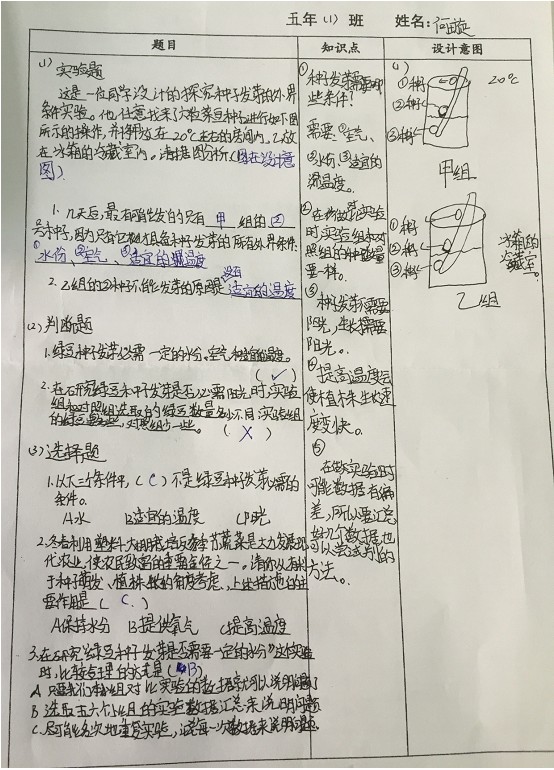 五年(1)班 姓名:
题目 知识点 设计意图
(1) 实验题
这是一位同学设计的探究种子发芽的外界
条件实验。他任意找来了六粒菜豆种子进行如下图
所示的操作,并将甲放在20℃左右的房间内,乙放
在冰箱的冷藏室内。请据图分析(图在设计意
图)
1. 几天后,最有可能发芽的只有 甲 组的 ②
号种子,因为只有它才具备种子发芽的所有外界条件:
①水份、②空气、③适宜的温度
2. 乙组的②种子不能发芽的原因是没有适宜的温度
(2) 判断题
1.绿豆种子发芽必需一定的水份、空气和适宜的温度。
(✓)
2. 在研究绿豆种子发芽是否必需阳光时,实验
组和对照组选取的绿豆数量多少不同,实验组
的绿豆多些,对照组少一些。 (X)
(3) 选择题
1.以下三个条件中,(C)不是绿豆种子发芽必需的
条件。
A水 B适宜的温度 C阳光
2.冬春利用塑料大棚栽培反季节蔬菜是大力发展现
代农业,使农民致富的重要途径之一。请你从有利
于种子萌发、植株生长的角度考虑,上述措施的主
要作用是(C.)
A保持水分 B提供氧气 C提高温度
3.在研究“绿豆种子发芽是否需要一定的水份”这个实验
时,比较合理的说法是(B)
A 只要我们本小组对比实验的数据就可以说明问题了
B 选取五六个小组的实验数据汇总来说明问题
C.尽可能多次地重复实验,以每一次数据来说明问题
①种子发芽需要哪
些条件?
需要:①空气、
②水份、③适宜的
温度。
②在做对比实验
时,实验组和对
照组的种子数量
要一样。
③
种子发芽不需要
阳光,生长需要
阳光。
④
提高温度会
使植株生长速
度变快。
⑤
在做实验时
可能数据有偏
差,所以要汇总
好几个数据,也
可以尝试别的
方法。
(1)
①种
②种
③种
20℃
甲组
①种
②种
③种
冰箱的
冷藏室。
乙组